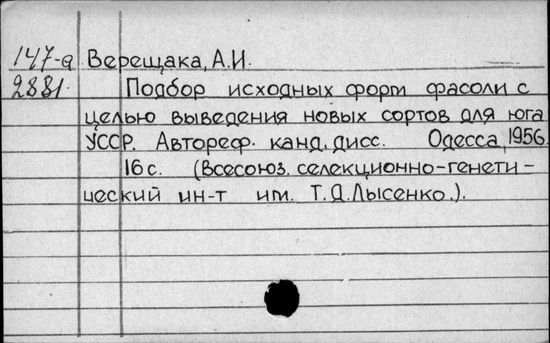 147-а Верещака, А.И.
2881. Подбор исходных форм фасоли с
целью выведения новых сортов для юга
УССР. Автореф. канд. дисс. Одесса, 1956.
16 с. (Всесоюз. селекционно-генети-
ческий ин-т им. Т.Д. Лысенко.).